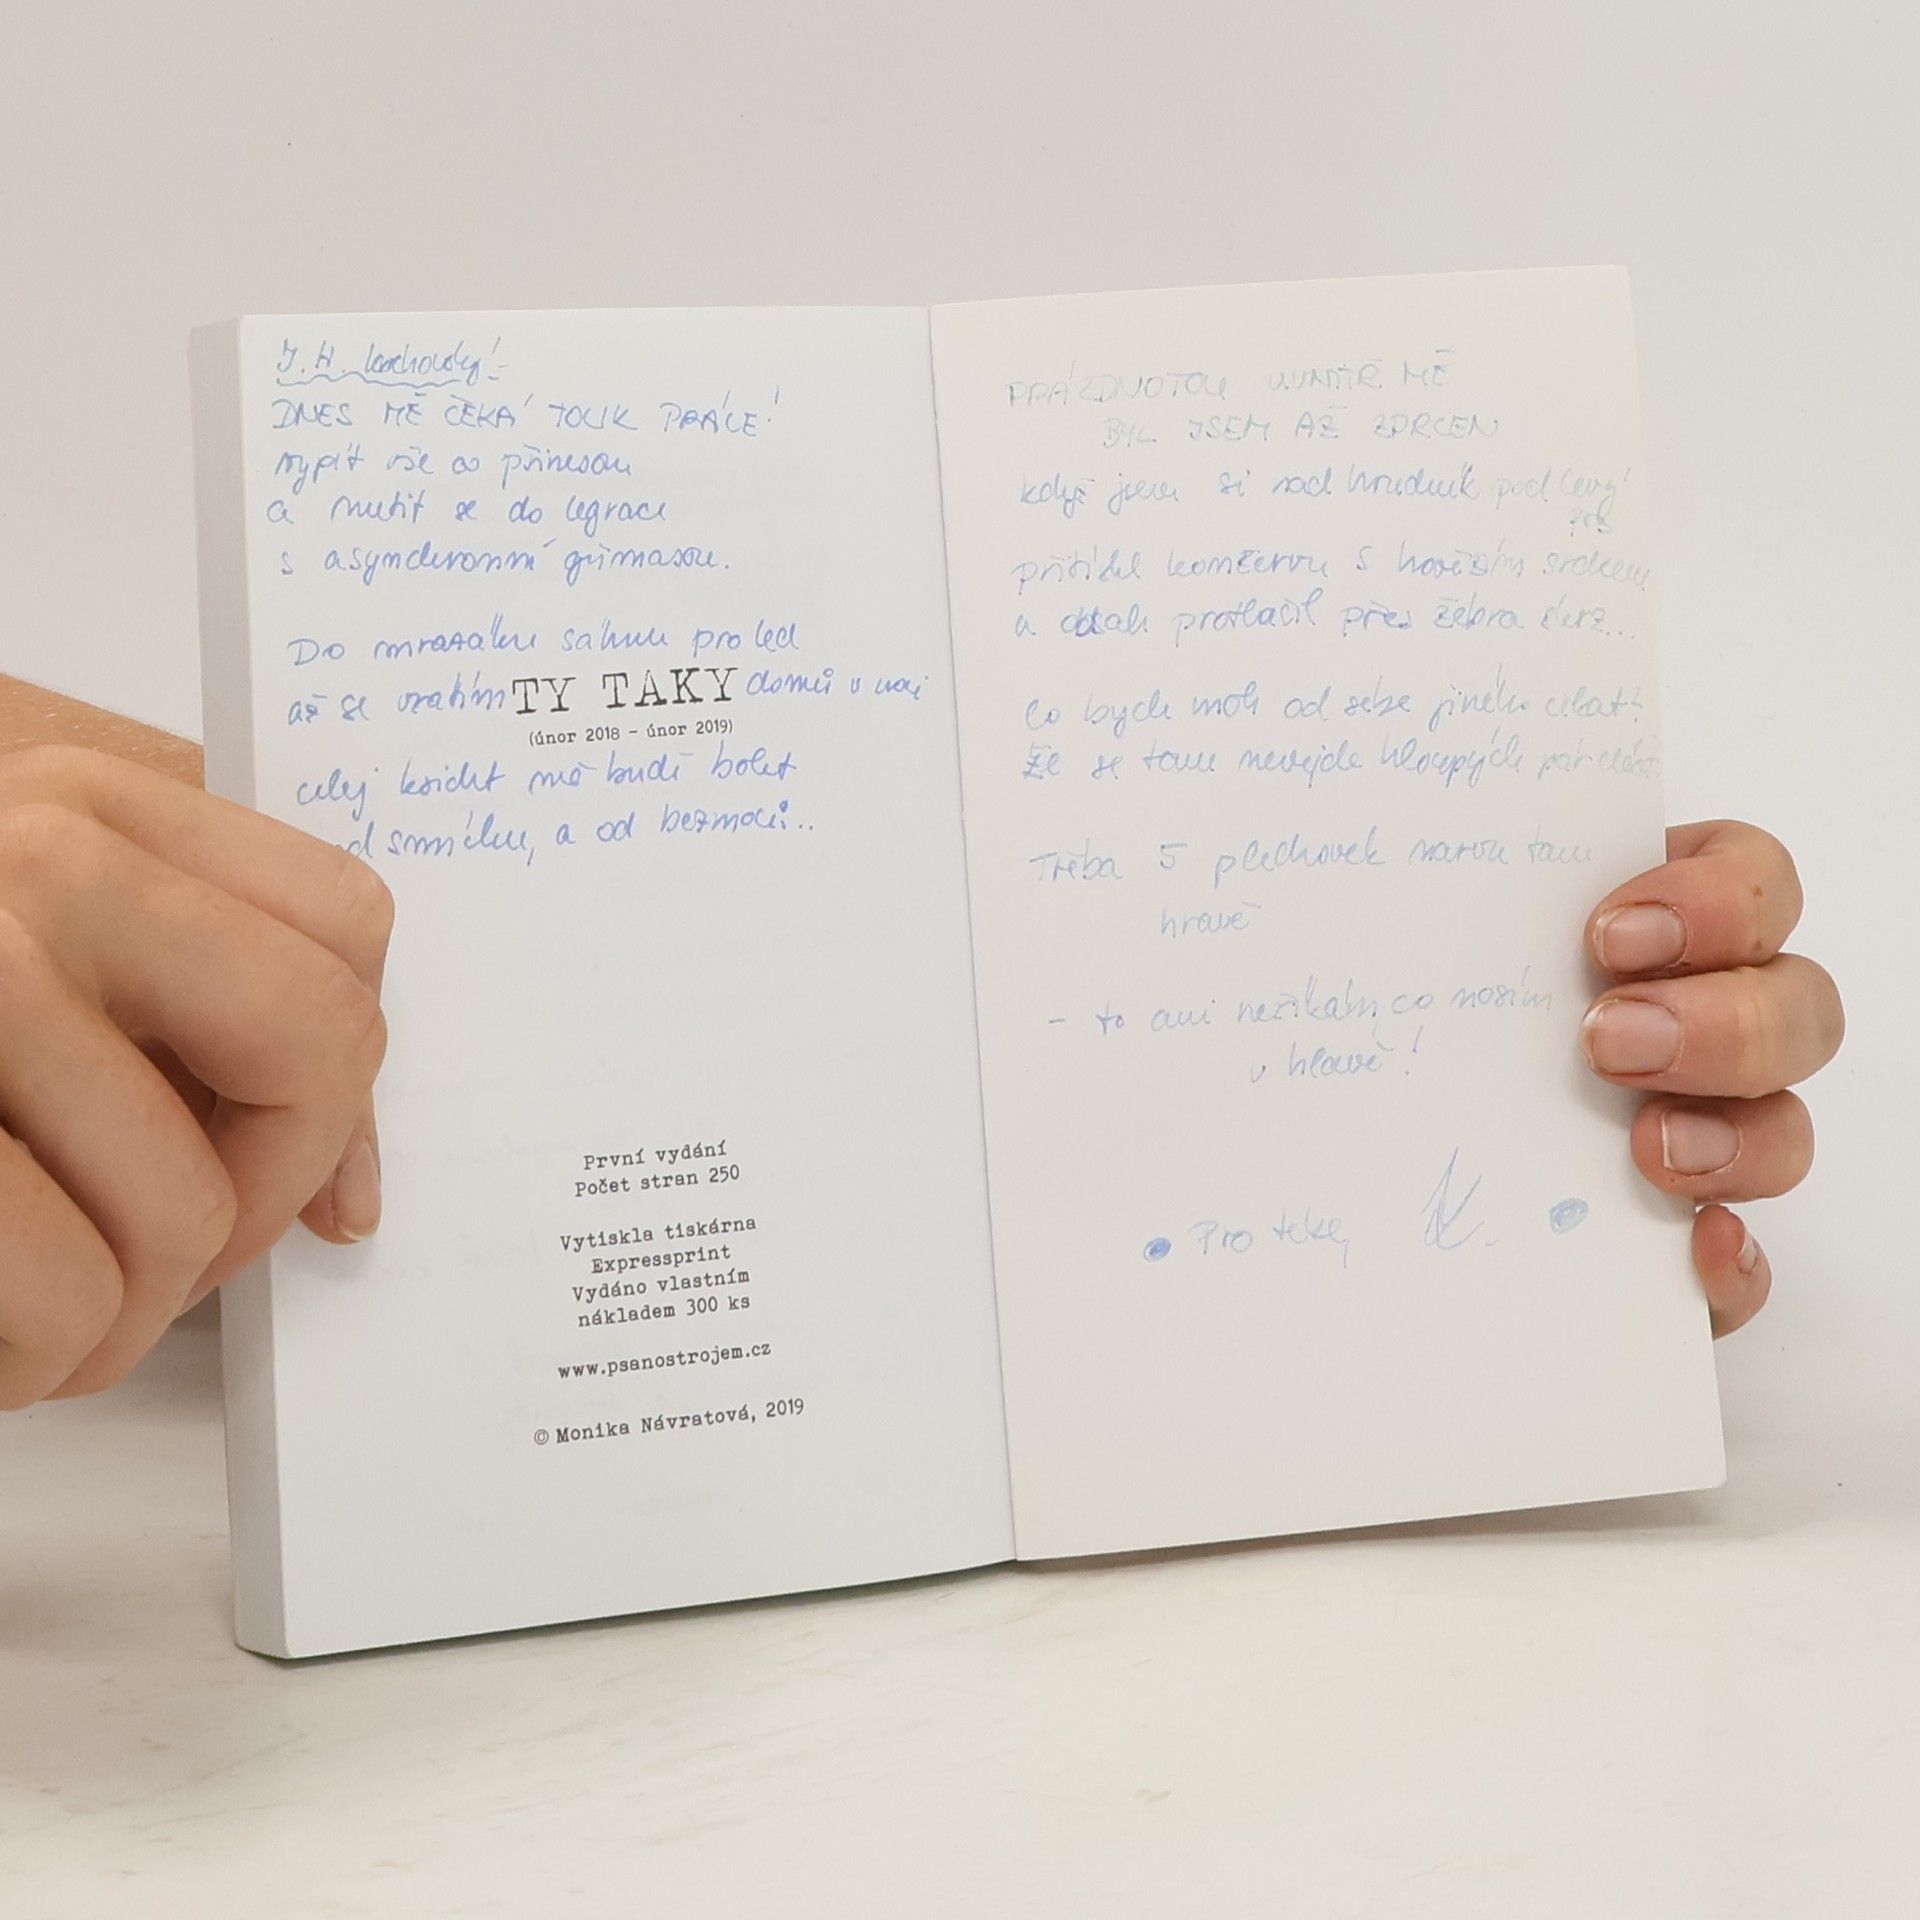 J. H. Krchovský!
DNES MĚ ČEKÁ TOLIK PRÁCE!
vypít vše co přinesou
a nutit se do legrace
s asynchronní grimasou.
Do mrazáku sáhnu pro led
až se vrátím domů v noci
TY TAKY
(únor 2018 - únor 2019)
celej ksicht mě bude bolet
od smíchu, a od bezmoci...
První vydání
Počet stran 250
Vytiskla tiskárna
Expressprint
Vydáno vlastním
nákladem 300 ks
www.psanostrojem.cz
© Monika Návratová, 2019
PRÁZDNOTOU UVNITŘ MĚ
BYL JSEM AŽ ZDRCEN
když jsem si nad hrudník pod levý
přitiskl konzervu s hovězím srdcem
a obsah protlačil přes žebra skrz...
Co bych moh od sebe jiného čekat?
Že se tam nevejde hloupých pár deka?
Třeba 5 plechovek narvu tam
hravě
- to ani neříkám, co nosím
v hlavě!
Pro tebe,